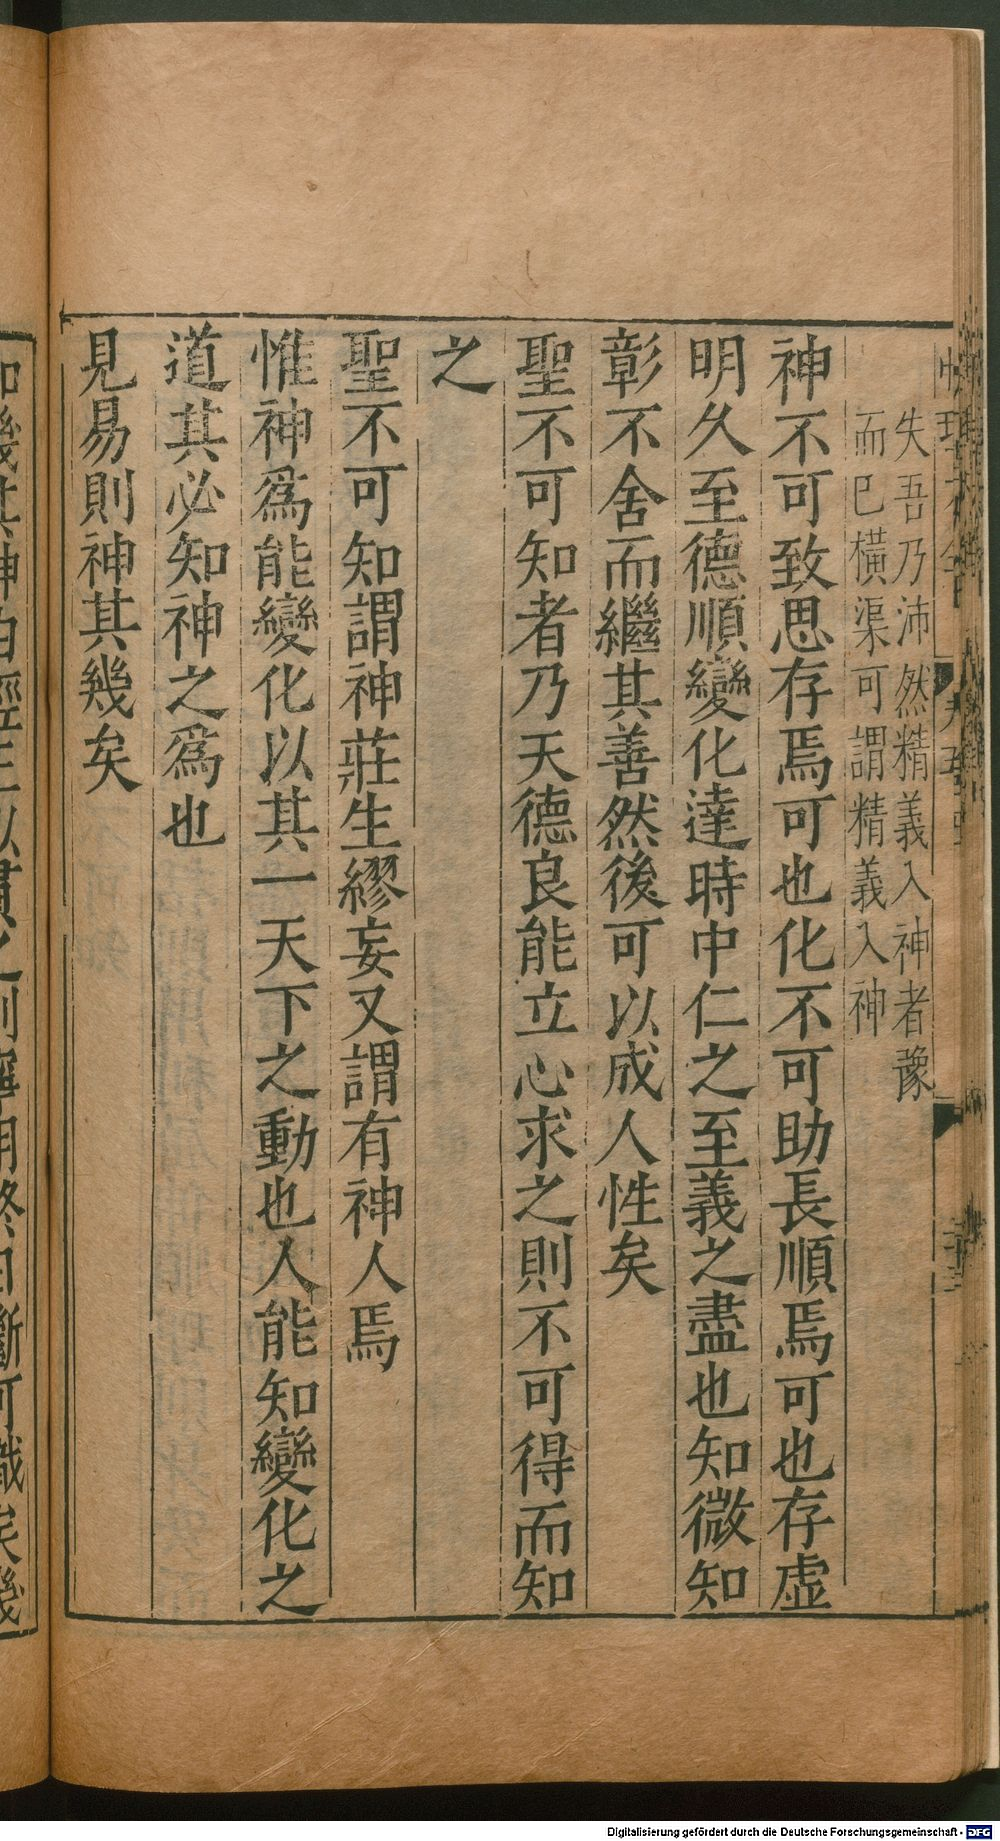 失吾乃沛然精義入神者豫
而已橫渠可謂精義入神
神不可致思存焉可也化不可助長順焉可也存虛
明久至德順變化達時中仁之至義之盡也知微知
彰不舍而繼其善然後可以成人性矣
聖不可知者乃天德良能立心求之則不可得而知
之
聖不可知謂神莊生繆妄又謂有神人焉
惟神爲能變化以其一天下之動也人能知變化之
道其必知神之爲也
見易則神其幾矣
知幾其神由經正以貫之則寧用終日斷可識矣幾
Digitalisierung gefördert durch die Deutsche Forschungsgemeinschaft - DFG